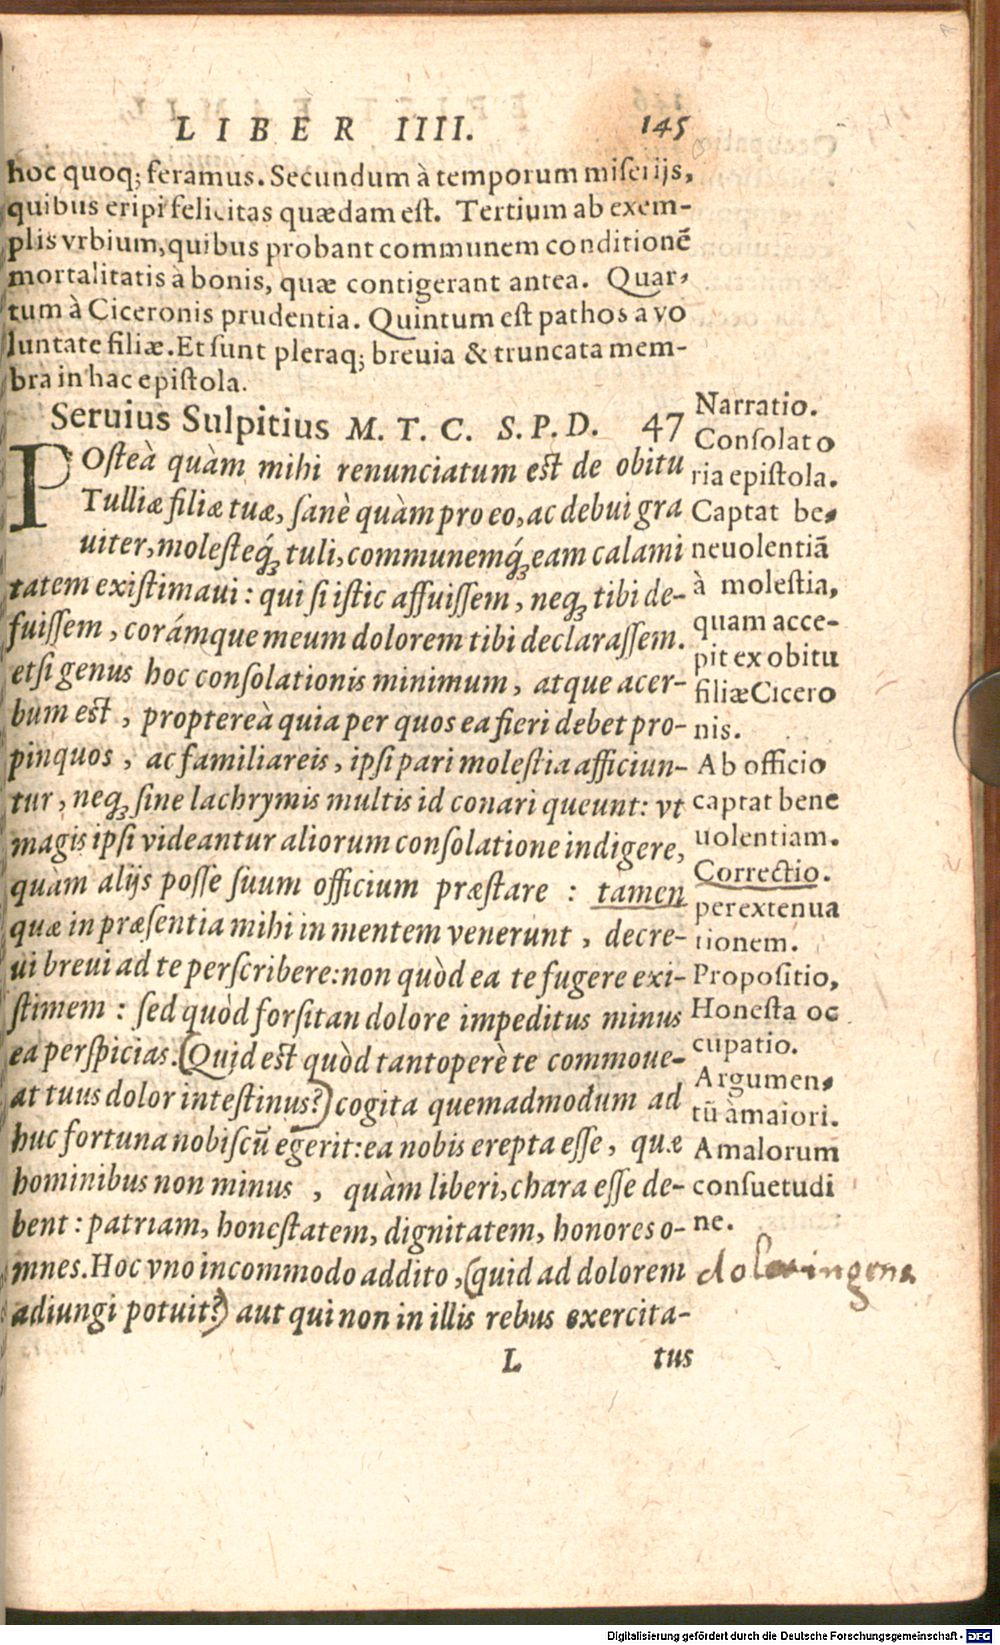 LIBER IIII. 145
hoc quoq; feramus. Secundum à temporum miserijs,
quibus eripi felicitas quædam est. Tertium ab exem-
plis vrbium, quibus probant communem conditionẽ
mortalitatis à bonis, quæ contigerant antea. Quar-
tum à Ciceronis prudentia. Quintum est pathos a vo
luntate filiæ. Et sunt pleraq; breuia & truncata mem-
bra in hac epistola.
Seruius Sulpitius M. T. C. S. P. D. 47
POsteà quàm mihi renunciatum est de obitu
Tulliæ filiæ tuæ, sanè quàm pro eo, ac debui gra
uiter, molesteq́; tuli, communemq́; eam calami
tatem existimaui: qui si istic affuissem, neq; tibi de-
fuissem, corámque meum dolorem tibi declarassem.
etsi genus hoc consolationis minimum, atque acer-
bum est, proptereà quia per quos ea fieri debet pro-
pinquos, ac familiareis, ipsi pari molestia afficiun-
tur, neq; sine lachrymis multis id conari queunt: vt
magis ipsi videantur aliorum consolatione indigere,
quàm alijs posse suum officium præstare: tamen
quæ in præsentia mihi in mentem venerunt, decre-
ui breui ad te perscribere: non quòd ea te fugere exi-
stimem: sed quòd forsitan dolore impeditus minus
ea perspicias. (Quid est quòd tantoperè te commoue-
at tuus dolor intestinus?) cogita quemadmodum ad
huc fortuna nobiscũ egerit: ea nobis erepta esse, quæ
hominibus non minus, quàm liberi, chara esse de-
bent: patriam, honestatem, dignitatem, honores o-
mnes. Hoc vno incommodo addito, (quid ad dolorem
adiungi potuit?) aut qui non in illis rebus exercita-
L tus
Narratio.
Consolato
ria epistola.
Captat be-
neuolentiã
à molestia,
quam acce-
pit ex obitu
filiæ Cicero
nis.
Ab officio
captat bene
uolentiam.
Correctio.
per extenua
tionem.
Propositio,
Honesta oc
cupatio.
Argumen-
tũ à maiori.
A malorum
consuetudi
ne.